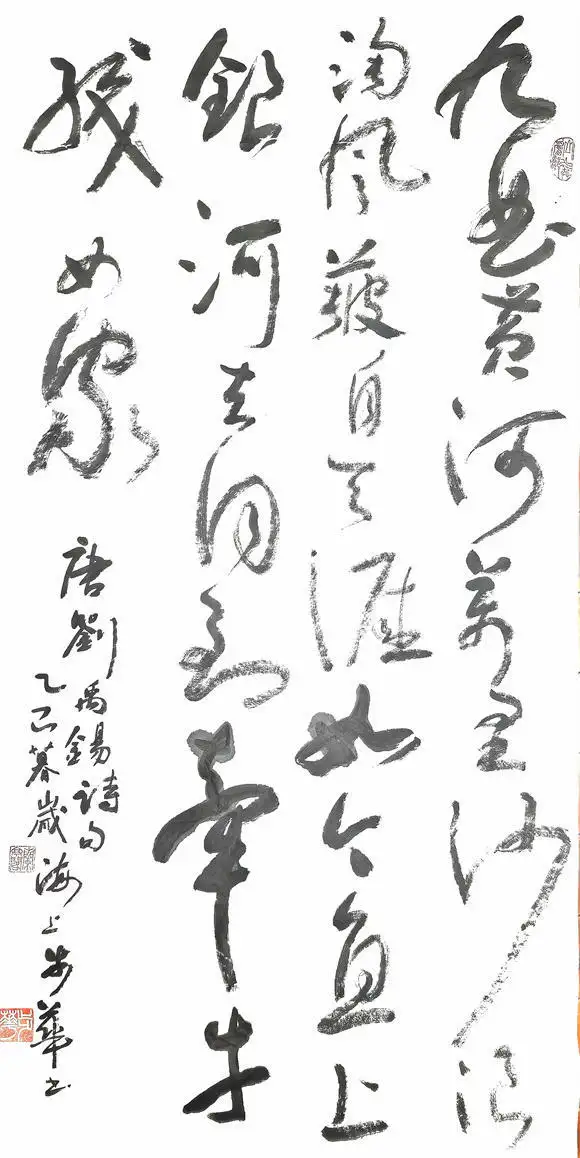 九曲黄河萬里沙浪
淘風簸自天涯如今直上
銀河去同到牽牛
織女家
唐劉禹錫詩句
乙巳暮歲海上華书